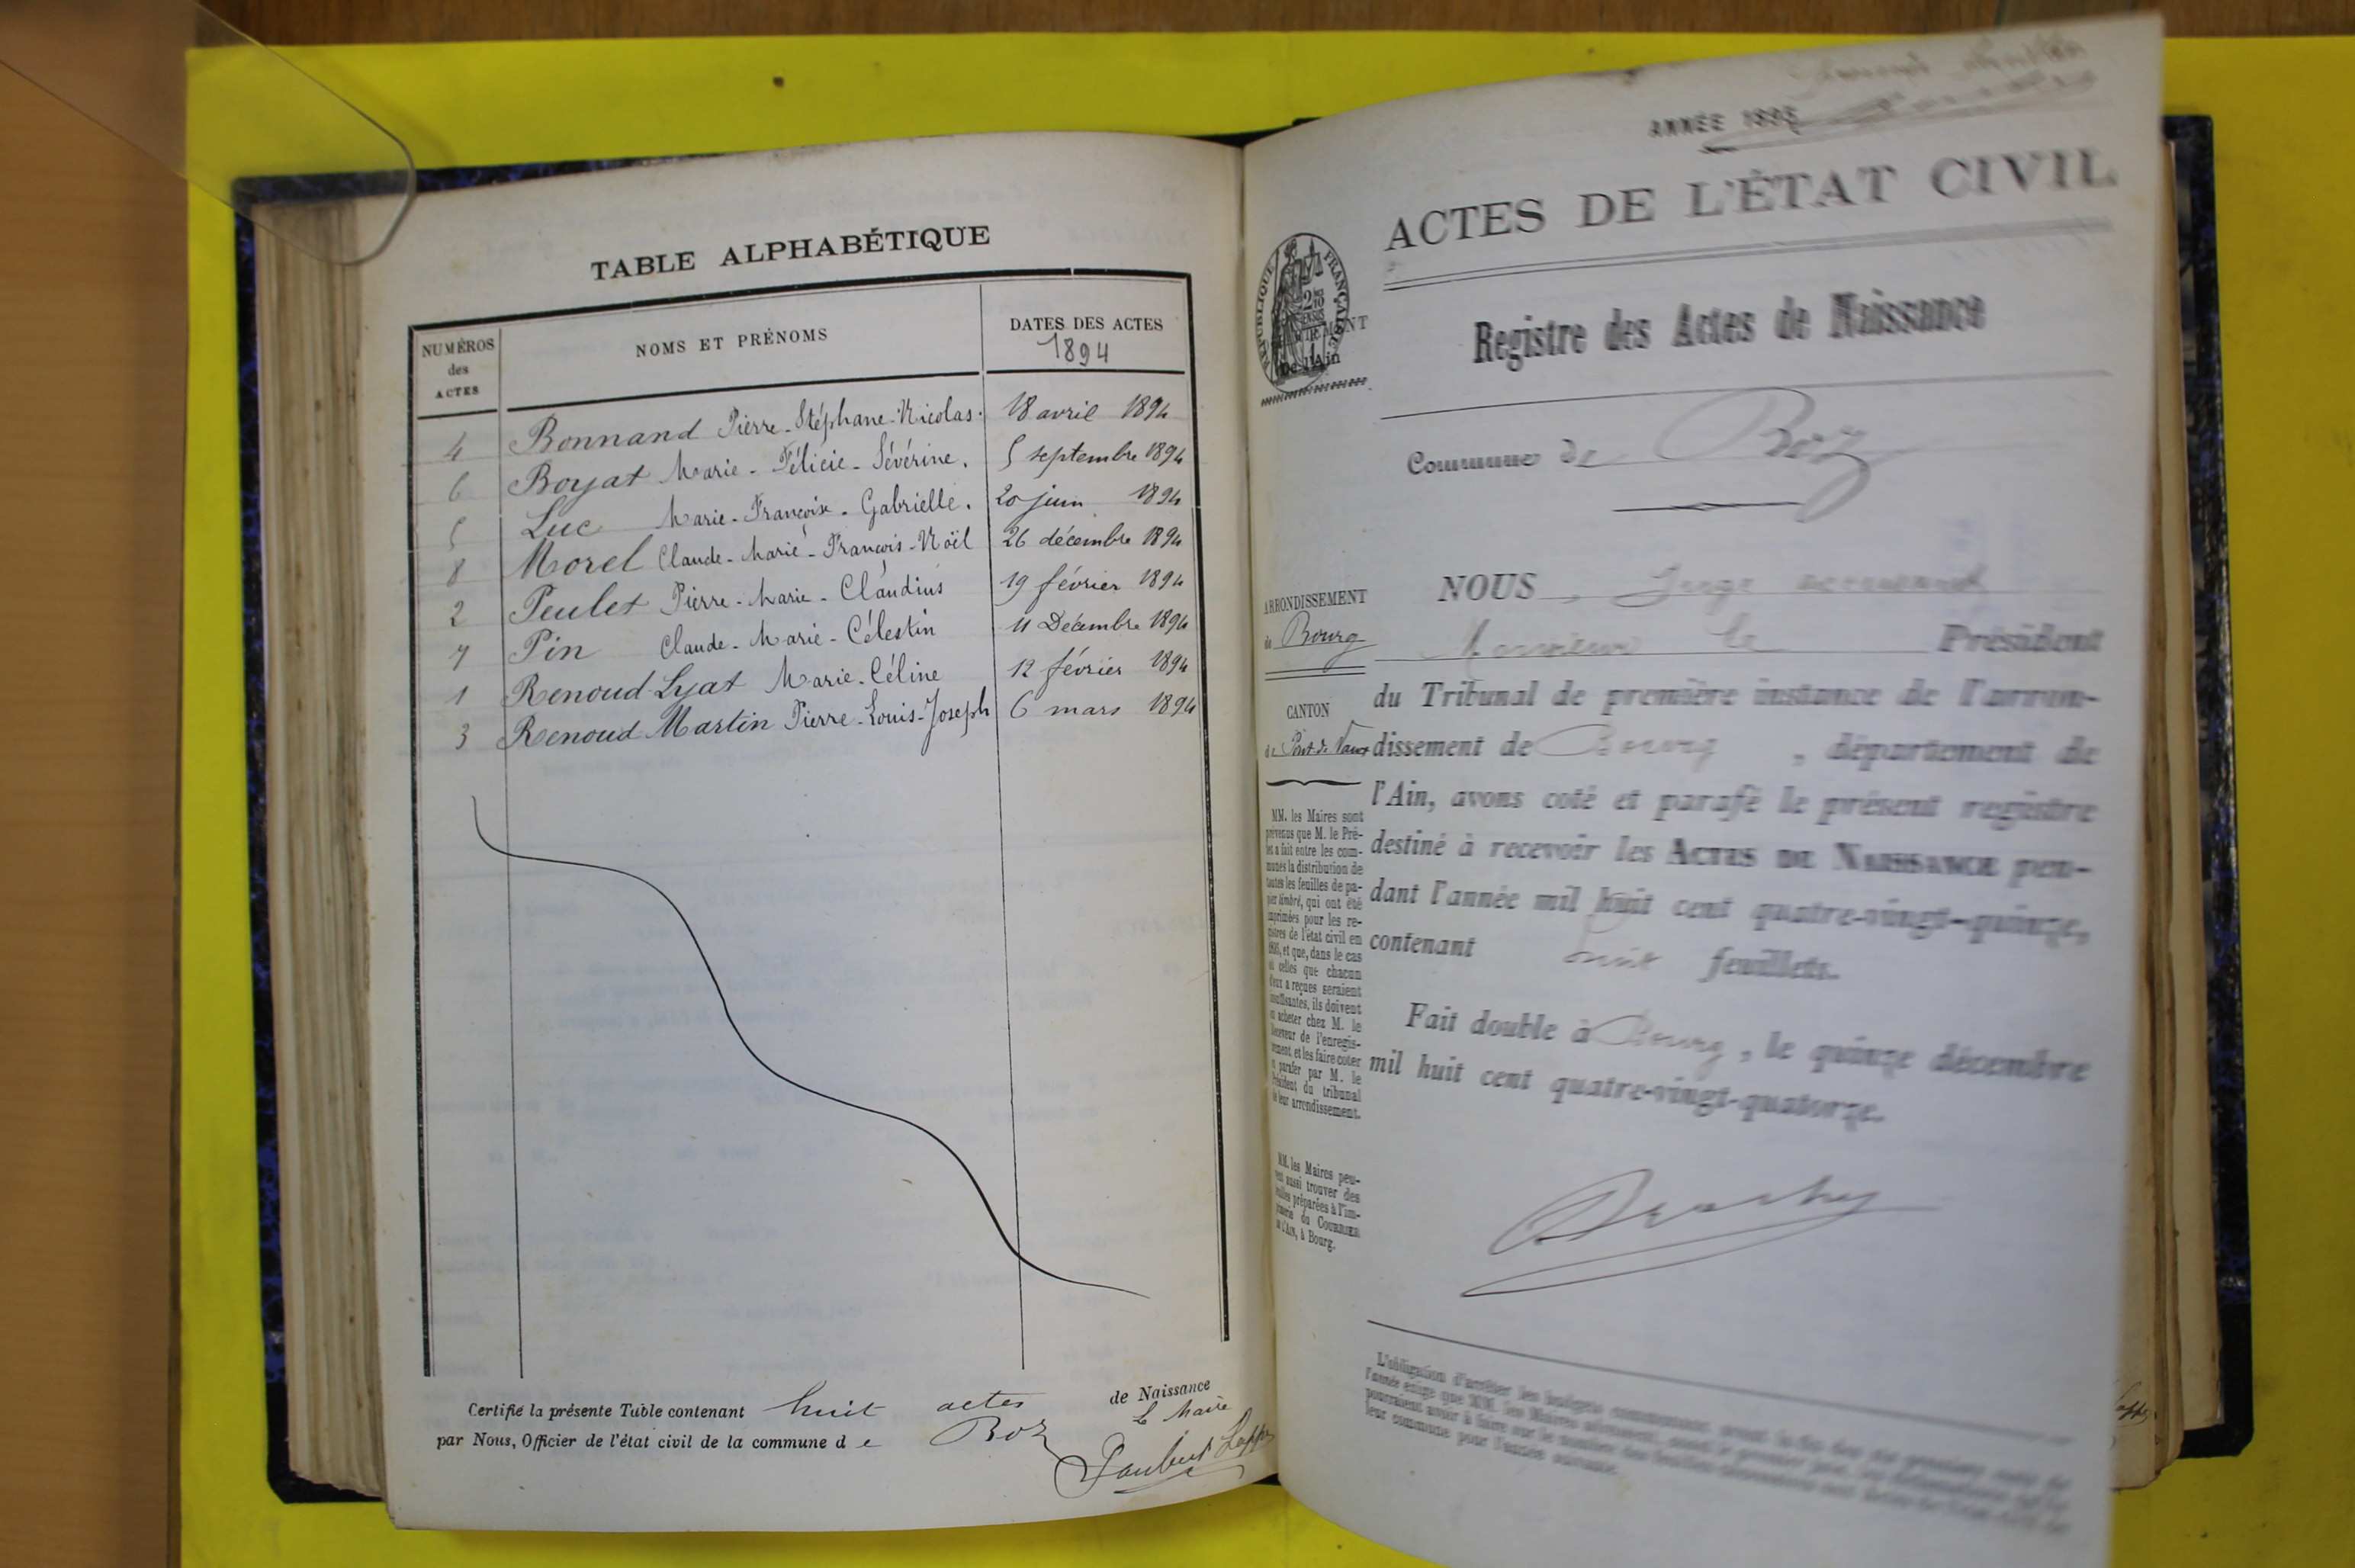 TABLE ALPHABÉTIQUE
NUMÉROS des ACTES
NOMS ET PRÉNOMS
DATES DES ACTES
1894
4 Bonnand Pierre-Stéphane-Nicolas. 18 avril 1894
6 Boyat Marie-Félicie-Sévérine. 5 septembre 1894
5 Luc Marie-Françoise-Gabrielle. 20 juin 1894
8 Morel Claude-Marie-François-Noël 26 décembre 1894
2 Peulet Pierre-Marie-Claudius 19 février 1894
7 Pin Claude-Marie-Célestin 11 Décembre 1894
1 Renoud-Lyat Marie-Céline 12 février 1894
3 Renoud Martin Pierre-Louis-Joseph 6 mars 1894
Certifié la présente Table contenant huit actes de Naissance
par Nous, Officier de l'état civil de la commune de Boz
Le Maire
ANNÉE 1895
ACTES DE L'ÉTAT CIVIL
RÉPUBLIQUE FRANÇAISE
Registre des Actes de Naissance
Commune de Boz
ARRONDISSEMENT
de Bourg
CANTON
de Pont-de-Vaux
MM. les Maires sont
prévenus que M. le Pré-
fet a fait entre les com-
munes la distribution de
toutes les feuilles de pa-
pier timbré, qui ont été
imprimées pour les re-
gistres de l'état civil en
1895, et que, dans le cas
où celles que chacun
d'eux a reçues seraient
insuffisantes, ils doivent
en acheter chez M. le
Receveur de l'enregis-
trement et les faire coter
et parafer par M. le
Président du tribunal
de leur arrondissement.
MM. les Maires peu-
vent aussi trouver des
feuilles préparées à l'im-
primerie du Courrier
de l'Ain, à Bourg.
NOUS, Juge
Monsieur le Président
du Tribunal de première instance de l'arron-
dissement de Bourg, département de
l'Ain, avons coté et parafé le présent registre
destiné à recevoir les ACTES DE NAISSANCE pen-
dant l'année mil huit cent quatre-vingt-quinze,
contenant huit feuillets.
Fait double à Bourg, le quinze décembre
mil huit cent quatre-vingt-quatorze.